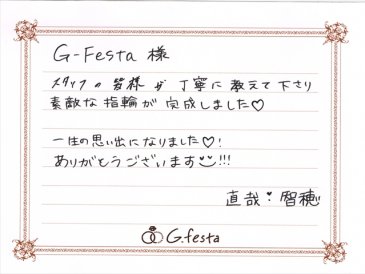 G-Festa 様
スタッフの皆様が丁寧に教えて下さり
素敵な指輪が完成しました♡
一生の思い出になりました♡!
ありがとうございます!!!
直哉・智穂
G.festa